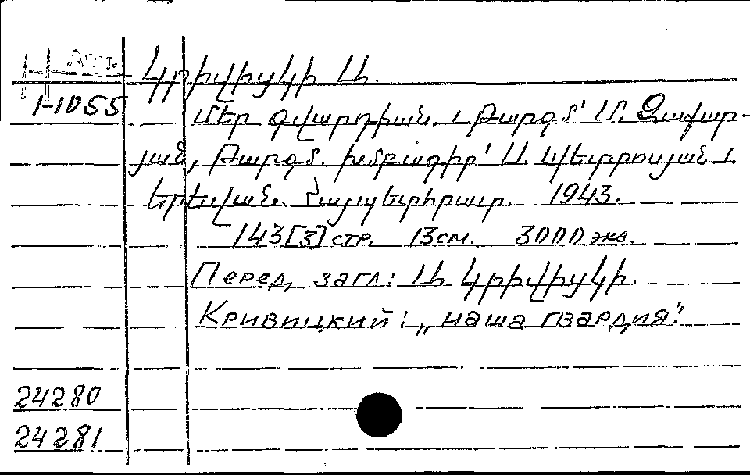 Կրիվիցկի Ա.
1-1055 Մեր գվարդիան. [Թարգմ՝ Մ. Զաքար-
յան, Թարգմ. խմբագիր՝ Ա. Պետրոսյան].
Երևան. Հայպետհրատ. 1943.
143[3] стр. 13см. 3000 экз.
Перед загл: Ա. Կրիվիցկի.
Кривицкий: „наша гвардия".
24280
24281